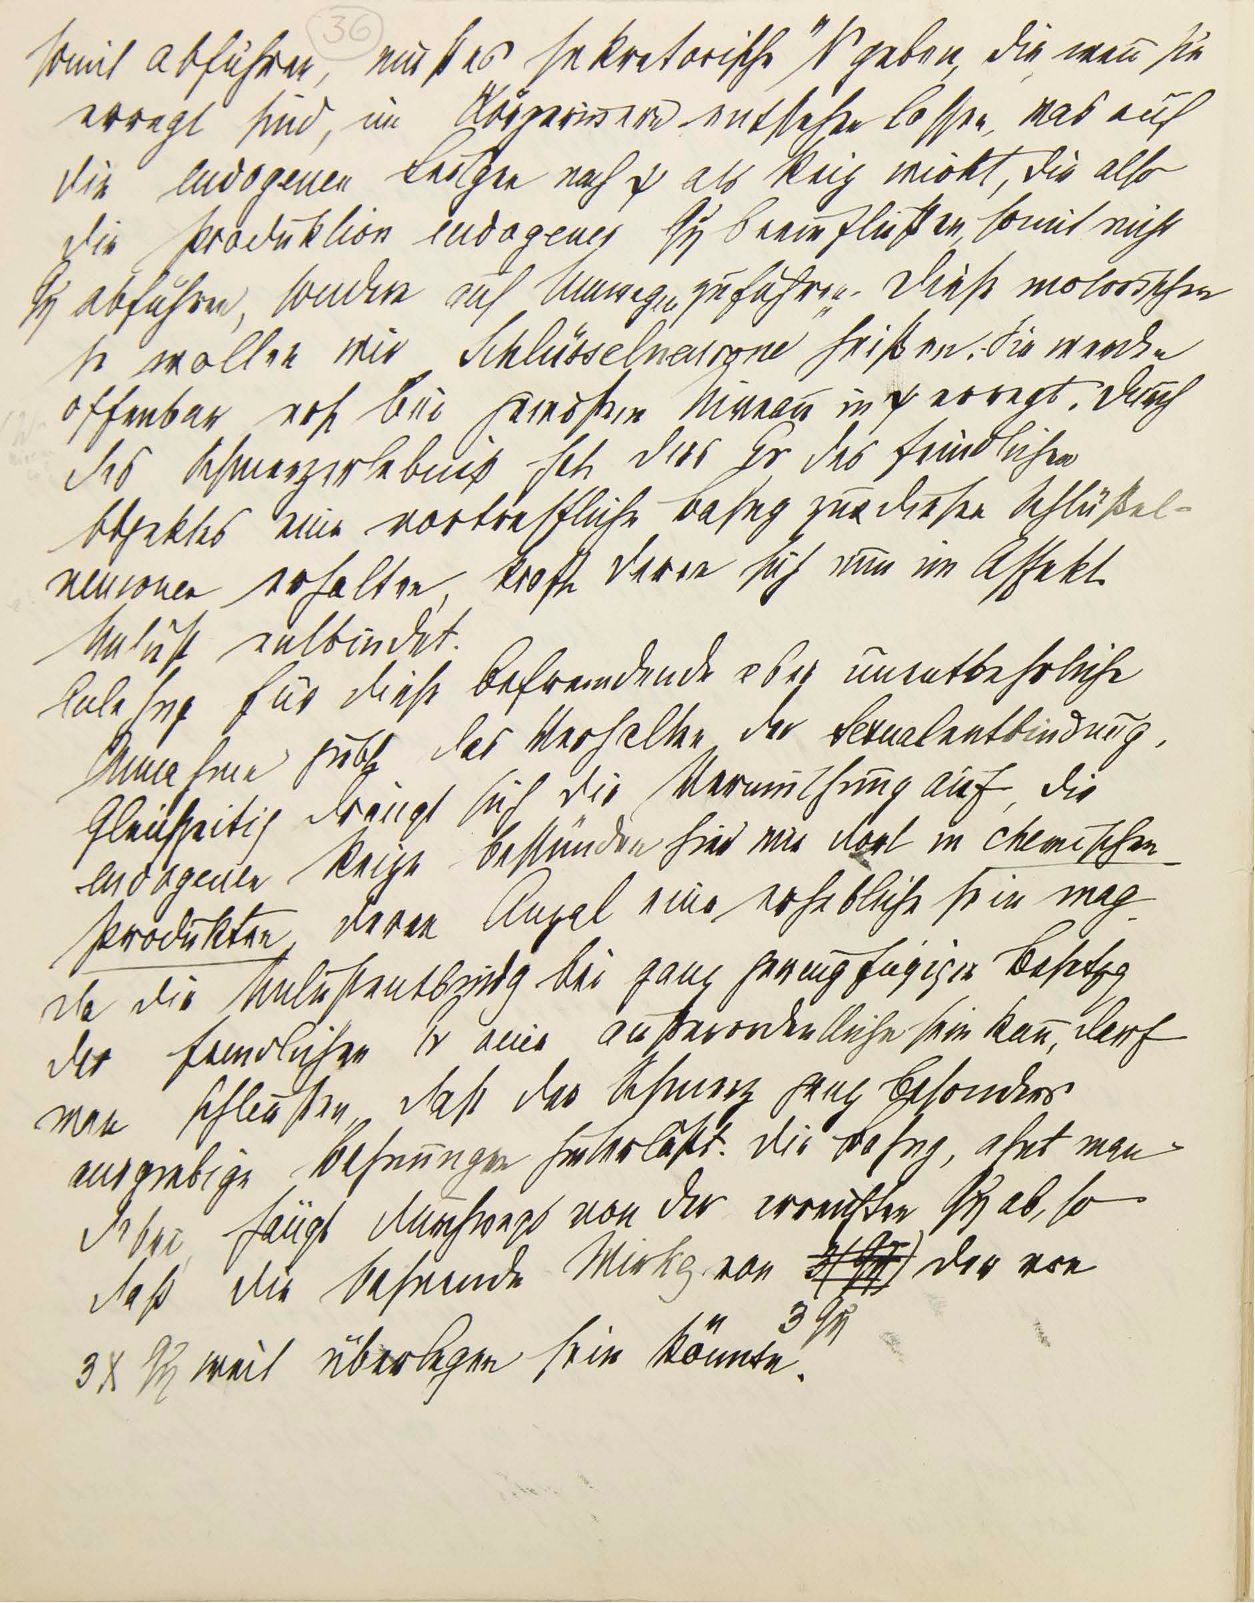 36
somit abführen, muß es sekretorische N geben, die wenn sie
erregt sind, im Körperinnern entstehen lassen, was auf
die endogenen Leitgen nach ψ als Reiz wirkt, die also
die Produktion endogener Qή beeinflußen, somit nicht
Qή abführen, sondern auf Umwegen „zuführen“. Diese motorischen
N wollen wir Schlüsselneurone heißen. Sie werden
offenbar erst bei gewissem Niveau in ψ erregt. Durch
das Schmerzerlebniß hat das Er des feindlichen
Objektes eine vortreffliche Bahng zu diesen Schlüßel-
neuronen erhalten, kraft deren sich nun im Affekt
Unlust entbindet.
Anlehng für diese befremdende aber unentbehrliche
Annahme gibt das Verhalten der Sexualentbindung.
Gleichzeitig drängt sich die Vermuthung auf, die
endogenen Reize bestünden hier wie dort in chemischen
Produkten, deren Anzal eine erhebliche sein mag.
Da die Unlustentbindg bei ganz geringfügiger Besetzg
der feindlichen Er eine außerordentliche sein kann, darf
man schließen, daß der Schmerz ganz besonders
ausgiebige Bahnungen hinterläßt. Die Bahng, ahnt man
dabei, hängt durchwegs von der erreichten Qή ab, so
daß die bahnende Wirkg von der von
3 Qή
3X Qή weit überlegen sein könnte.